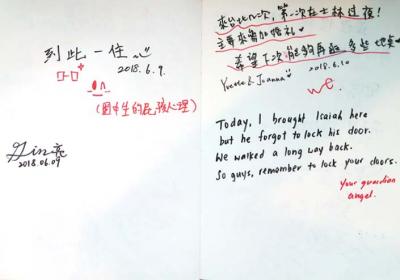 到此一住
2018.6.9.
(國中生的屁孩心理)
2018.06.09
來台北八次，第一次在士林过夜！
主要來參加婚礼。
希望下次能夠再亟多些地
Yvette & Joanna
2018.6.10
we.
Today, I brought Isaiah here
but he forgot to lock his door.
We walked a long way back.
So guys, remember to lock your doors.
Your guardian
angel.